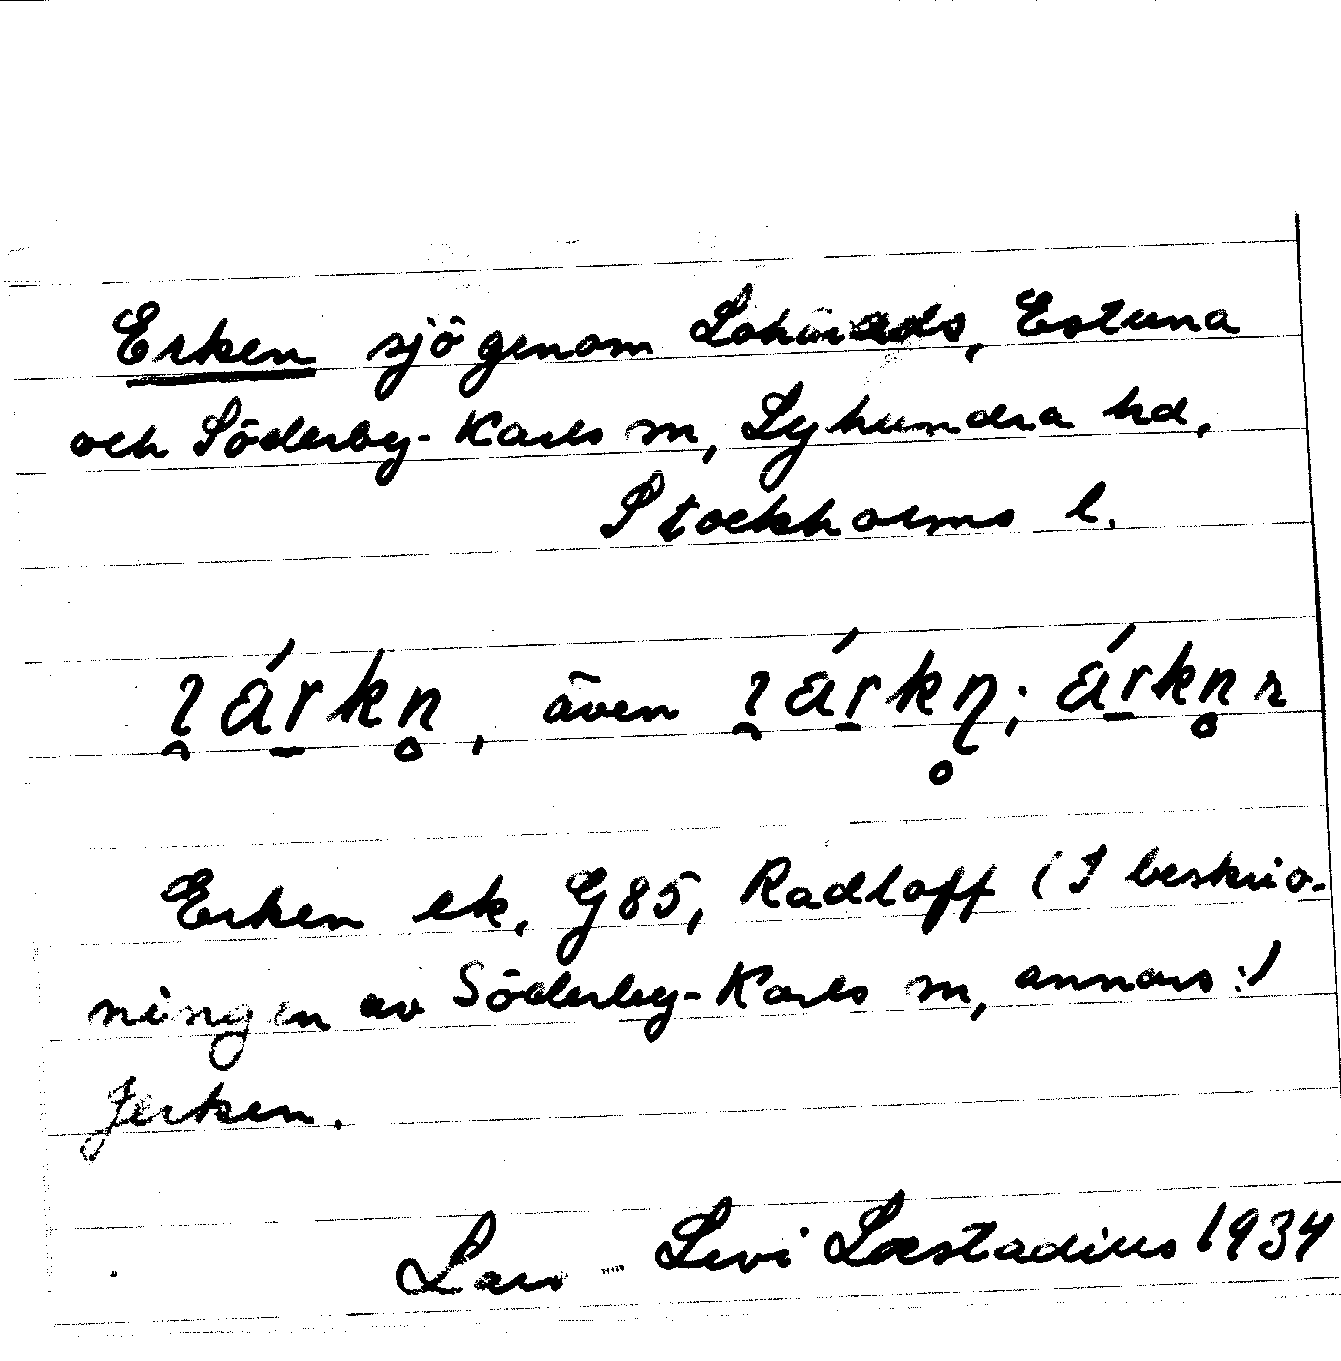 Erken sjö genom Lohärads, Estuna
och Söderby-Karls sn, Lyhundra hd,
Stockholms l.
ı̯ árkn̥, även ı̯ árkn̥; árkn̥ r
Erken ek, G85, Radloff (I beskriv-
ningen av Söderby-Karls sn, annars :)
Jerken.
Lars-Levi Læstadius 1934